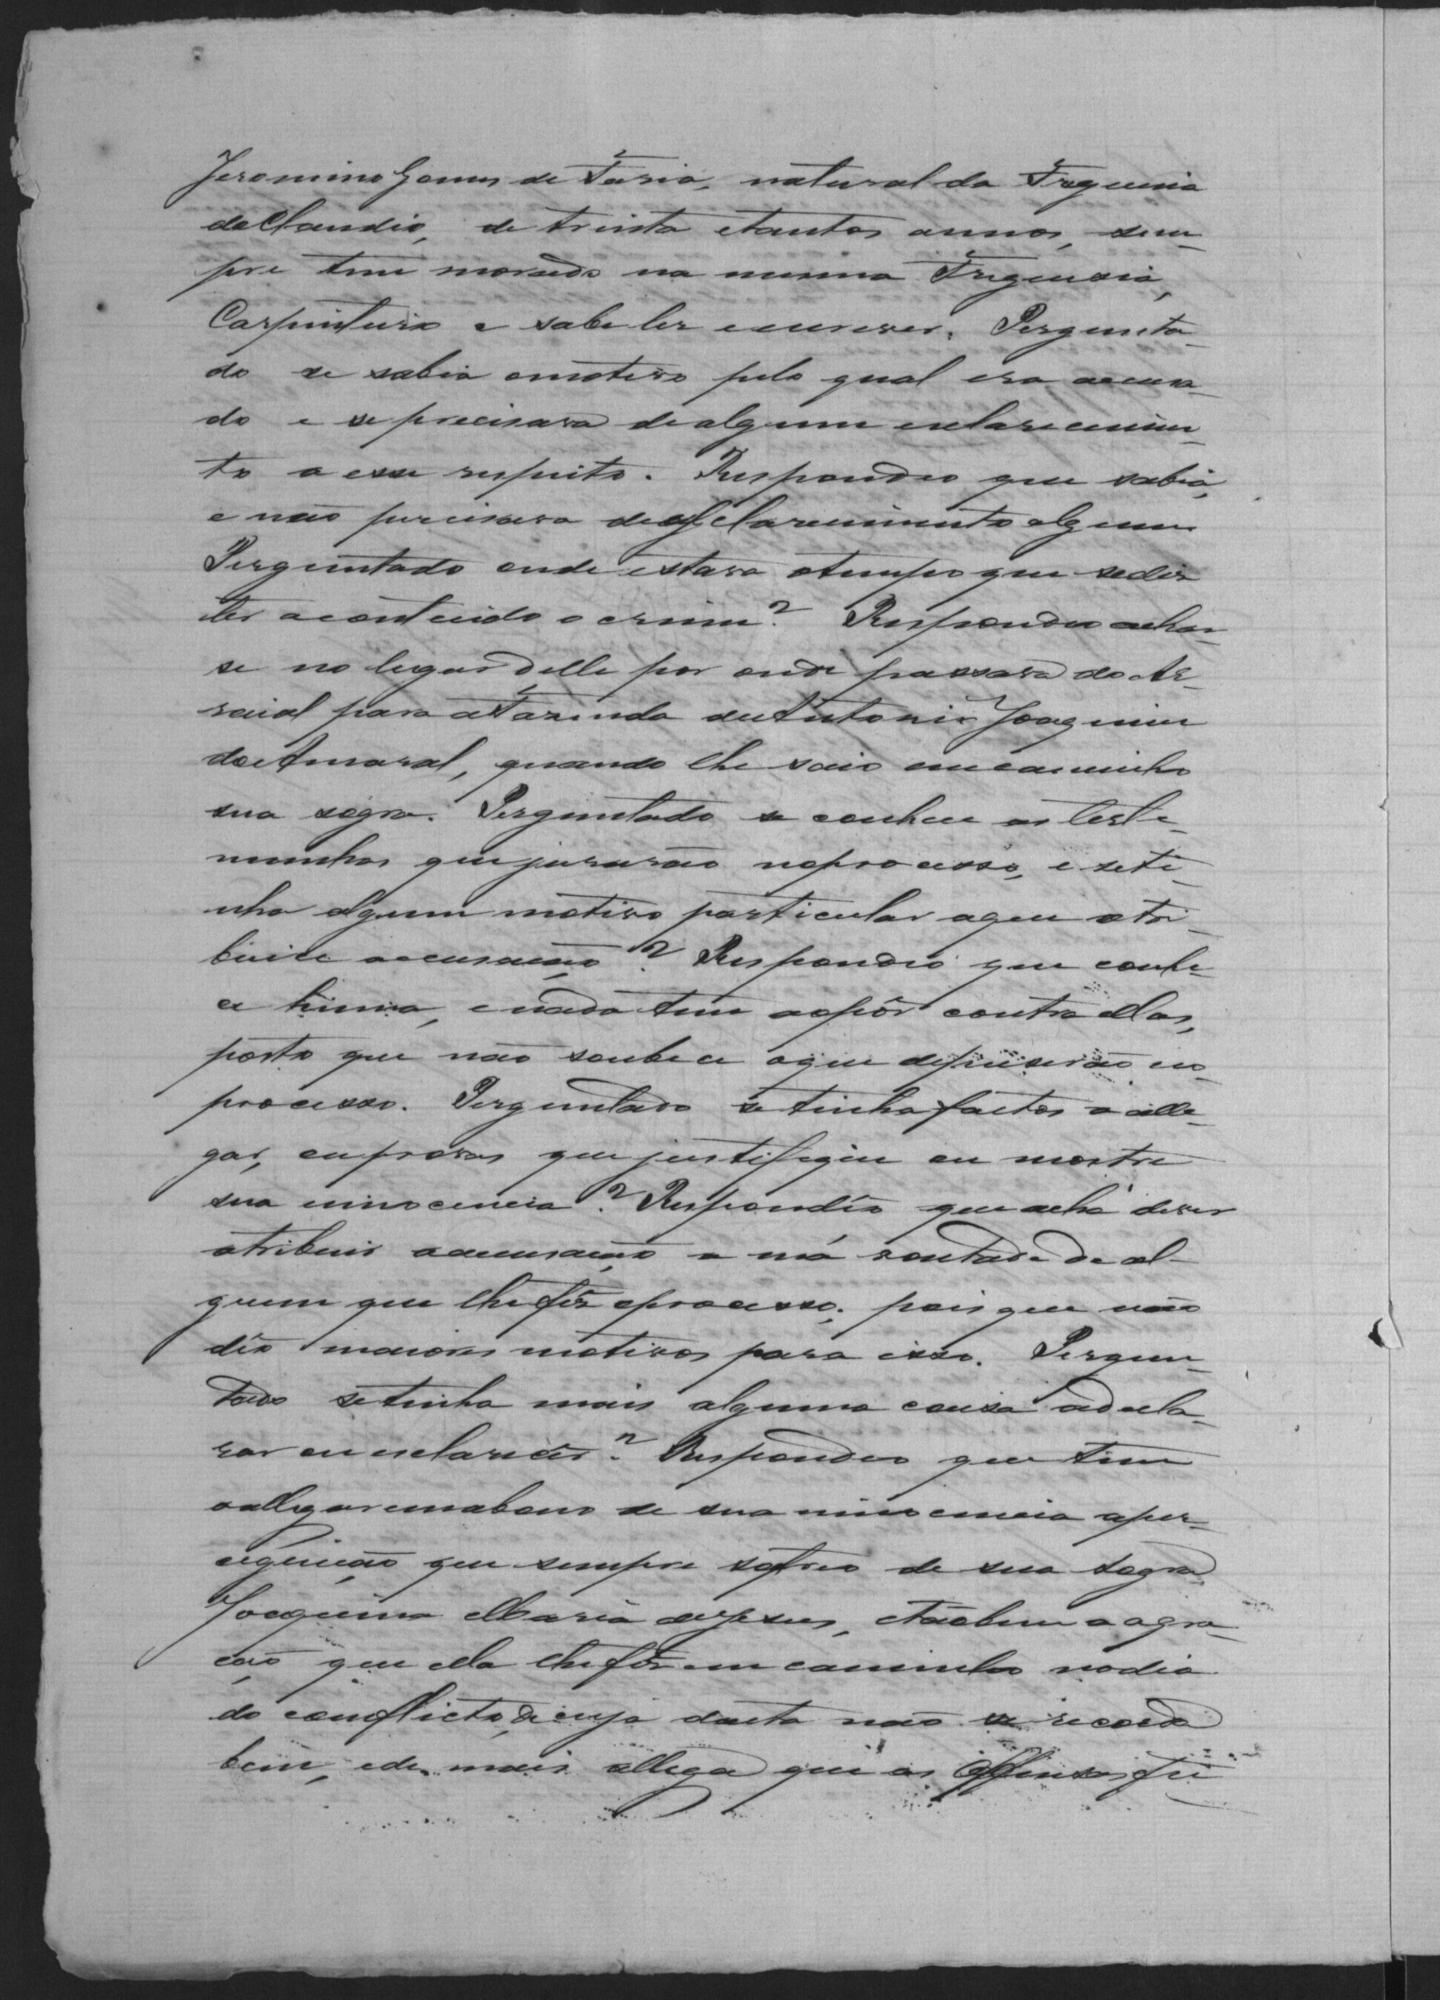 Jeronimo Gomes de Faria, natural da Freguesia
do Claudio, de trinta e tantos annos, sem-
pre tem morado na mesma Freguesia,
Carpinteiro e sabe ler e escrever. Pergunta-
do se sabia o motivo pelo qual era accusa-
do e se precisava de algum esclarecimen-
to a esse respeito. Respondeo que sabia,
e não precisava de esclarecimento algum
Perguntado onde estava o tempo que se diz
ter acontecido o crime? Respondeo achar
se no lugar delle por onde passava do Ar-
raial para a Fazenda de Antonio Joaquim
do Amaral, quando lhe saio em caminho
sua sogra. Perguntado se conhece as teste-
munhas que jurarão no processo, e se ti-
nha algum motivo particular a que atri-
buir a accusação? Respondeo que conhe-
ce huma, e nada tem a opôr contra ellas,
posto que não soubece o que depuserão no
processo. Perguntado se tinha factos a alle-
gar, ou provas que justifiquem ou mostre
sua innocencia? Respondeo que acha dever
atribuir a accusação a má vontade de al-
guem que lhe fêz o processo, pois que não
dêo maiores motivos para isso. Pergun-
tado se tinha mais alguma cousa a decla-
rar ou esclarecêr? Respondeo que tem
a allegar em abono de sua innocencia a per-
ceguição que sempre sofreo de sua sogra
Joaquina Maria de Jesus, e tãobem a agra-
ção que ella lhe fêz em caminho no dia
do conflicto, de cuja data não se recorda
bem, e de mais allega que as offensas fei